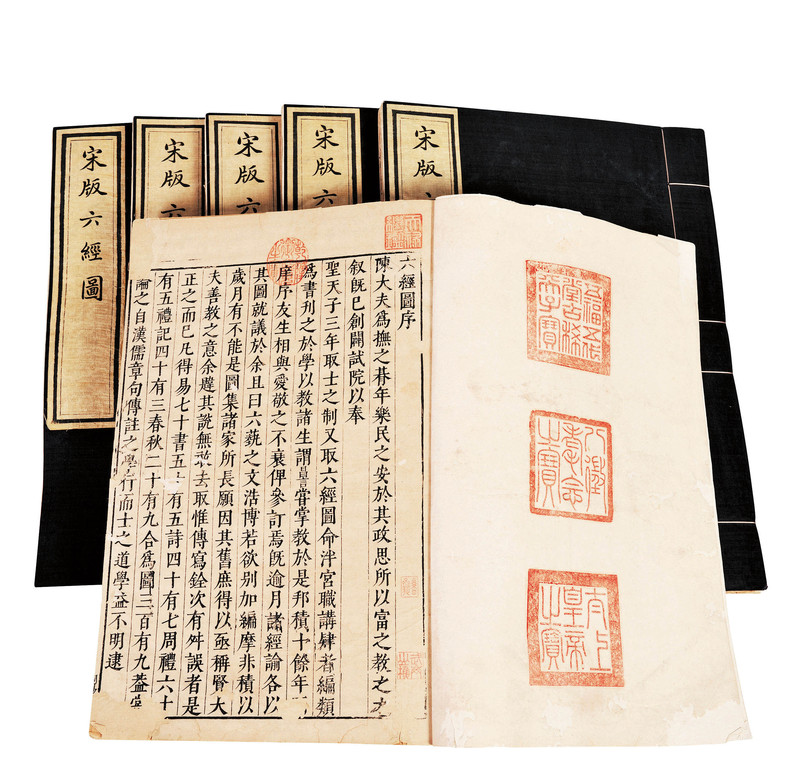 宋版六經圖
宋版六
宋版六
宋版六
宋版
六經圖序
陳大夫爲撫之朞年樂民之安於其政思所以富之教之
叙旣已創闢試院以奉
聖天子三年取士之制又取六經圖命泮宮職講肄者編類
爲書刋之於學以教諸生謂嘗掌教於是邦積十餘年
庠序友生相與愛敬之不衰俾參訂焉旣逾月諸經論各以
其圖就議於余且曰六蓺之文浩博若欲别加編摩非積以
歲月有不能是圖集諸家所長願因其舊庶得以亟稱賢大
夫善教之意余韙其說無敢去取惟傳寫銓次有舛誤者是
正之而已凡得易七十書五十有五詩四十有七周禮六十
有五禮記四十有三春秋二十有九合爲圖三百有九蓋嘗
論之自漢儒章句傳註之學行而士之道學益不明逮
五福五代堂古稀天子寶
八徵耄念之寶
太上皇帝之寶